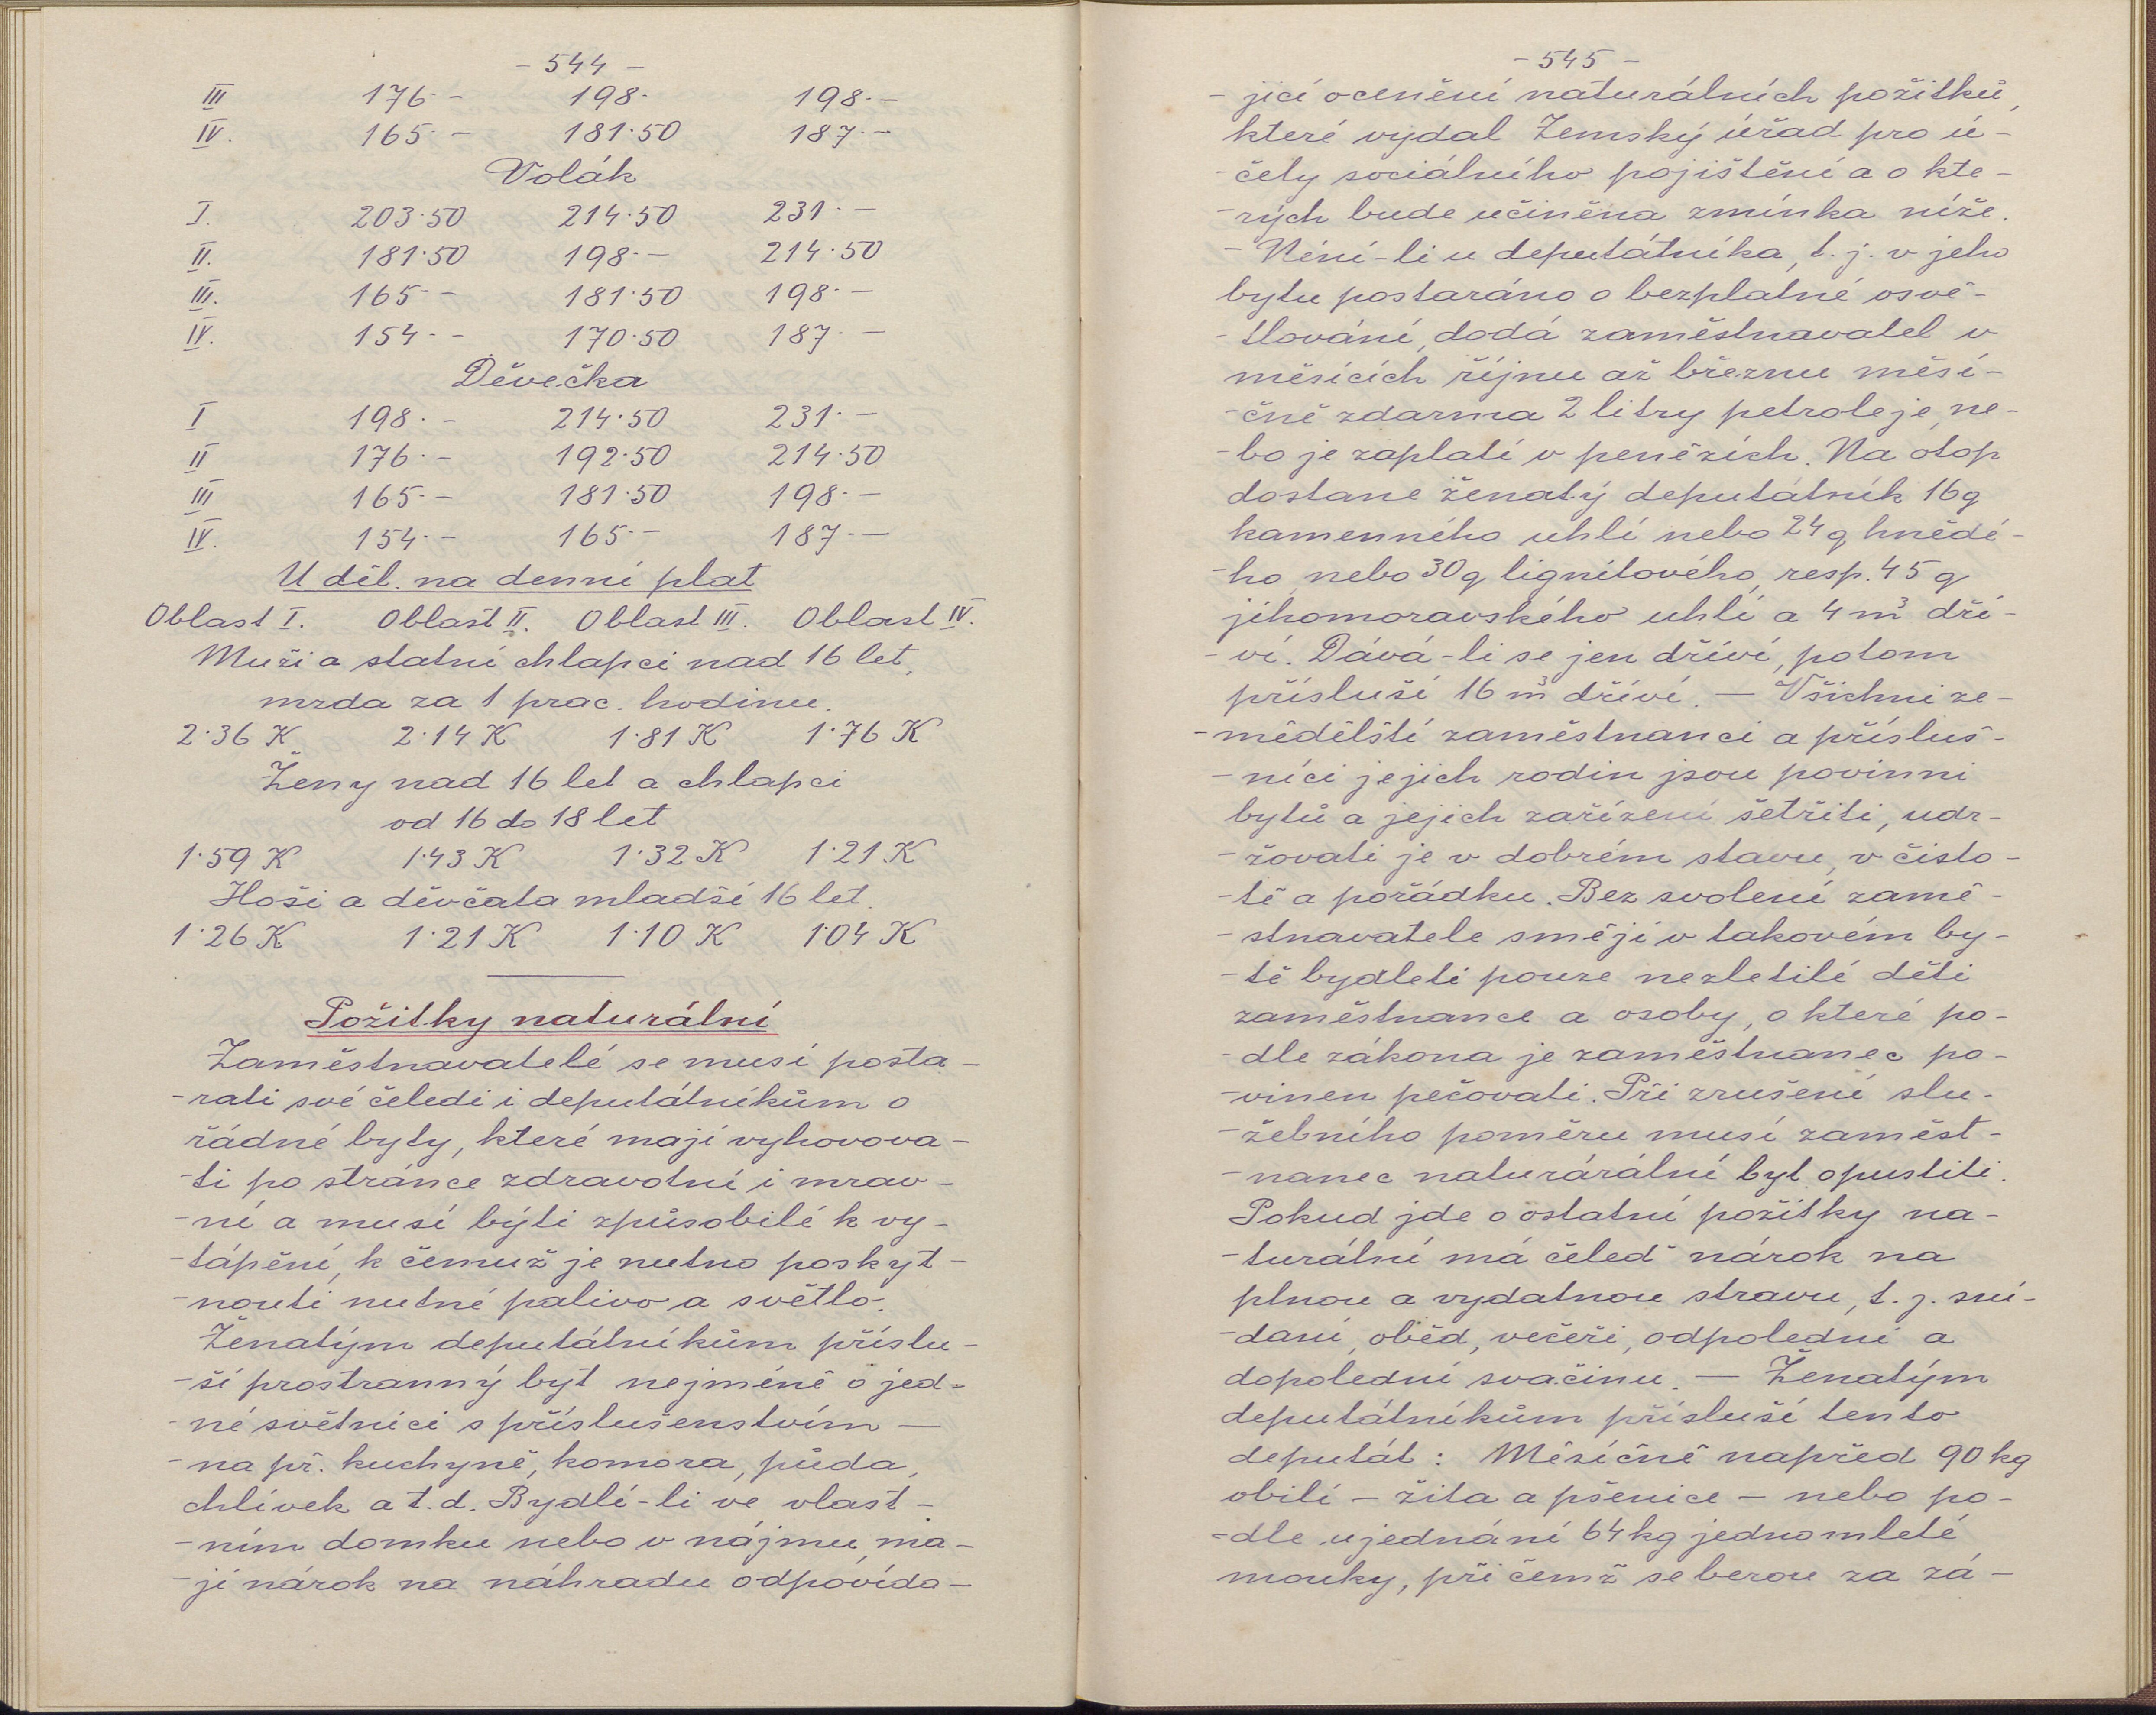 - 544 -
III 176·- 198· 198·-
IV. 165·- 181·50 187·-
Volák
I. 203·50 214·50 231·-
II. 181·50 198·- 214·50
III. 165·- 181·50 198·-
IV. 154·- 170·50 187·-
Děvečka
I 198·- 214·50 231·-
II 176·- 192·50 214·50
III 165·- 181·50 198·-
IV. 154·- 165·- 187·-
U děl. na denní plat
Oblast I. Oblast II. Oblast III. Oblast IV.
Muži a statní chlapci nad 16 let,
mzda za 1 prac. hodinu.
2·36 K 2·14 K 1·81 K 1·76 K
Ženy nad 16 let a chlapci
od 16 do 18 let
1·59 K 1·43 K 1·32 K 1·21 K
Hoši a děvčata mladší 16 let.
1·26 K 1·21 K 1·10 K 1·04 K
Požitky naturální
Zaměstnavatelé se musí posta-
-rati své čeledi i deputátníkům o
řádné byty, které mají vyhovova-
-ti po stránce zdravotní i mrav-
-ní a musí býti způsobilé k vy-
-tápění, k čemuž je nutno poskyt-
-nouti nutné palivo a světlo.
Ženatým deputátníkům příslu-
-ší prostranný byt nejméně o jed-
-né světnici s příslušenstvím —
-na př. kuchyně, komora, půda,
chlívek a t. d. Bydlí-li ve vlast-
-ním domku nebo v nájmu, ma-
-jí nárok na náhradu odpovída-
- 545 -
-jící ocenění naturálních požitků,
které vydal Zemský úřad pro ú-
-čely sociálního pojištění a o kte-
-rých bude učiněna zmínka níže.
- Není-li u deputátníka, t. j. v jeho
bytu postaráno o bezplatné osvě-
-tlování, dodá zaměstnavatel v
měsících říjnu až březnu měsí-
-čně zdarma 2 litry petroleje, ne-
-bo je zaplatí v penězích. Na otop
dostane ženatý deputátník 16 q
kamenného uhlí nebo 24 q hnědé-
-ho, nebo 30 q lignitového, resp. 45 q
jihomoravského uhlí a 4 m³ dří-
-ví. Dává-li se jen dříví, potom
přísluší 16 m³ dříví. — Všichni ze-
-mědělští zaměstnanci a přísluš-
-níci jejich rodin jsou povinni
bytů a jejich zařízení šetřiti, udr-
-žovati je v dobrém stavu, v čisto-
-tě a pořádku. Bez svolení zamě-
-stnavatele smějí v takovém by-
-tě bydleti pouze nezletilé děti
zaměstnance a osoby, o které po-
-dle zákona je zaměstnanec po-
-vinen pečovati. Při zrušení slu-
-žebního poměru musí zaměst-
-nanec naturárální byt opustiti.
Pokud jde o ostatní požitky na-
-turální má čeleď nárok na
plnou a vydatnou stravu, t. j. sní-
-daní, oběd, večeři, odpolední a
dopolední svačinu. — Ženatým
deputátníkům přísluší tento
deputát: Měsíčně napřed 90 kg
obilí - žita a pšenice - nebo po-
-dle ujednání 64 kg jednomleté
mouky, při čemž se berou za zá-